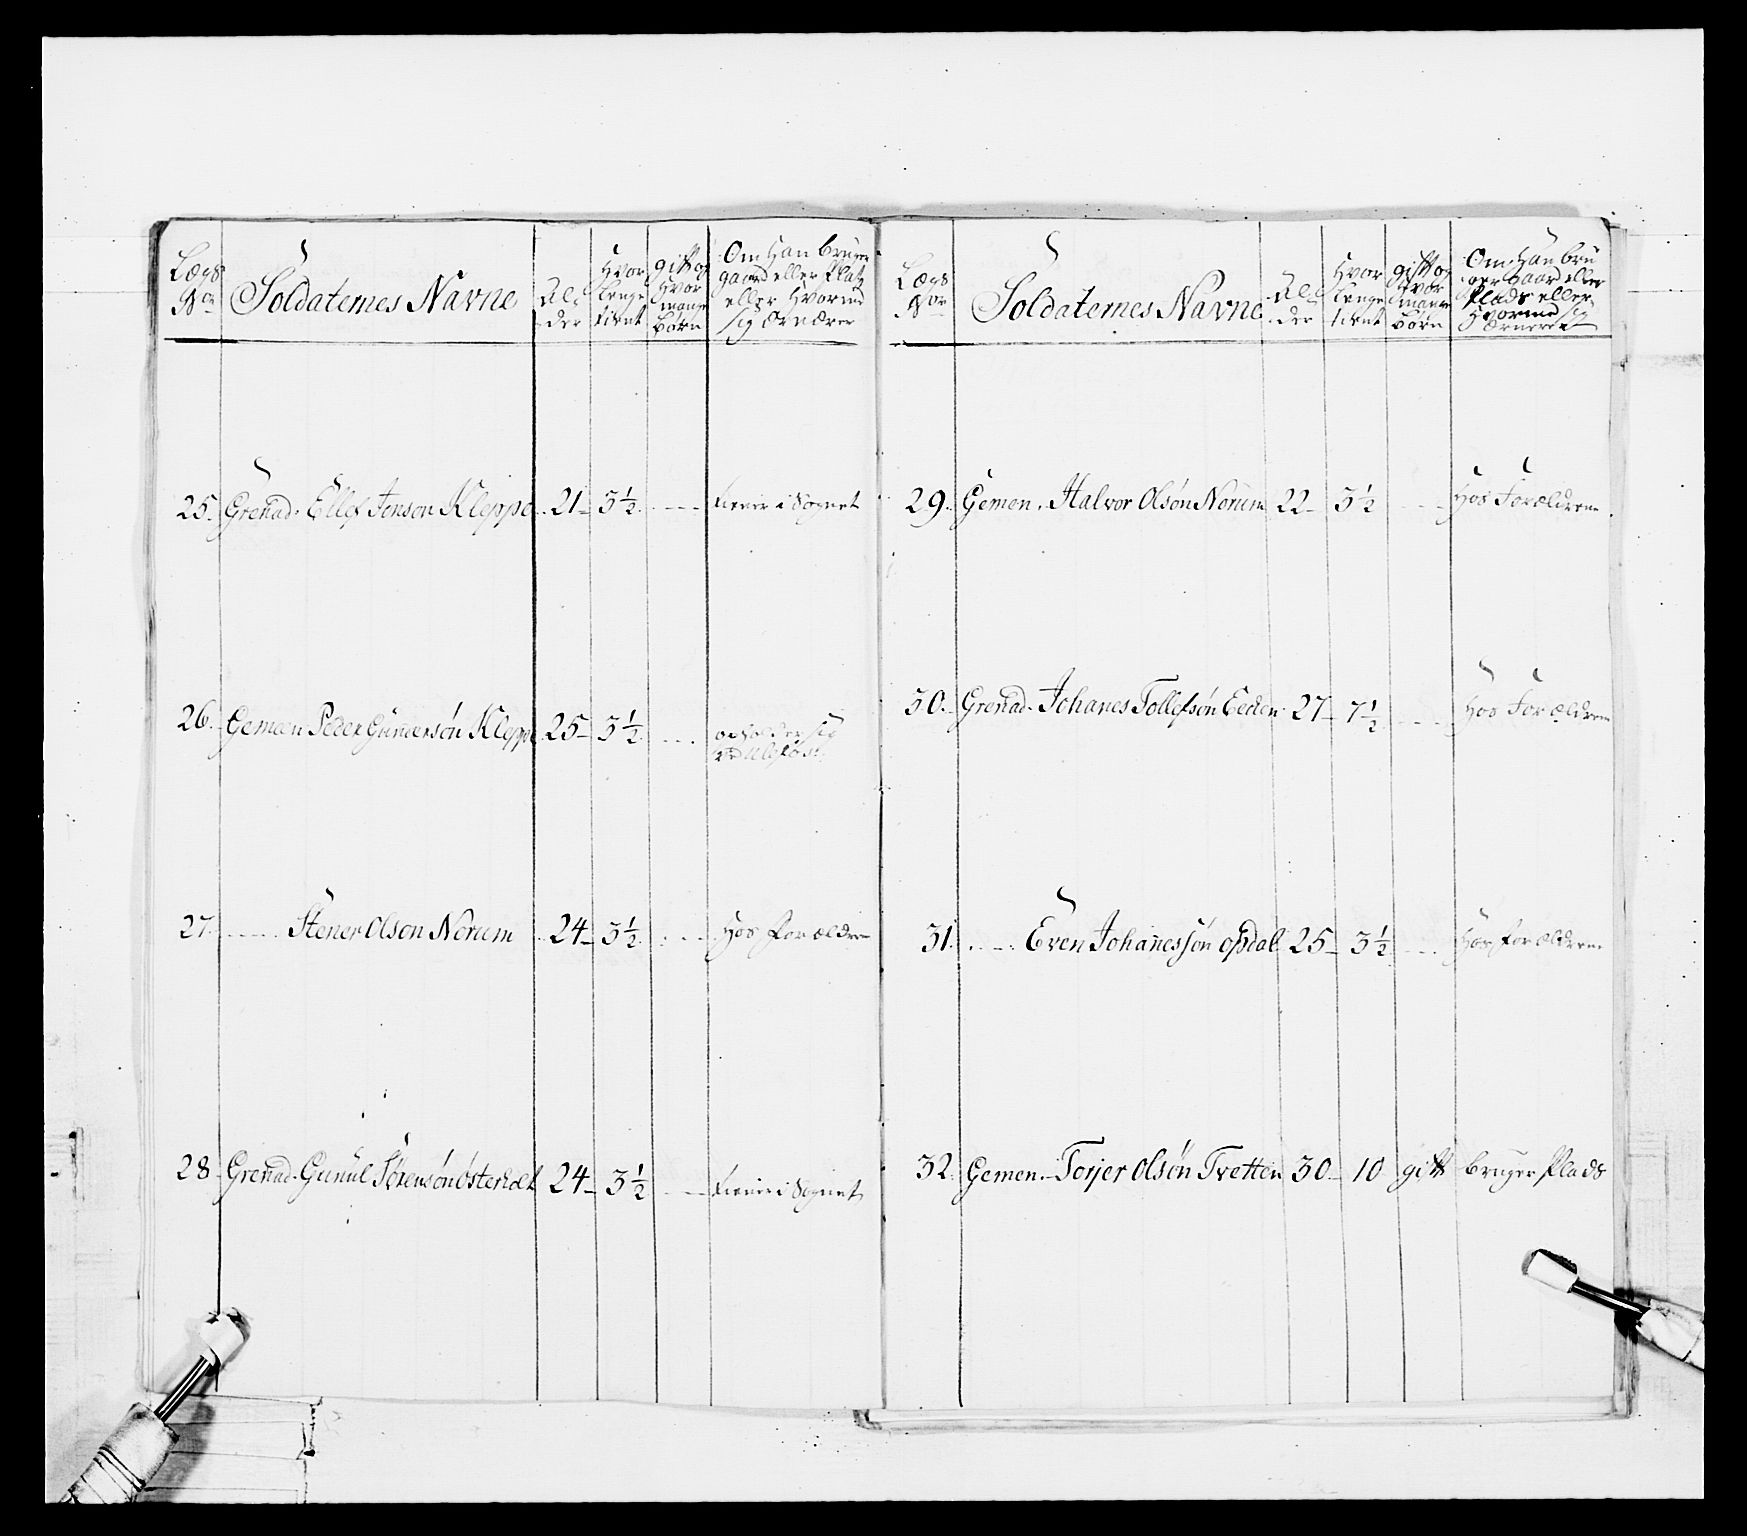 Lægs No
Soldaternes Navne
Al-
der
Hvor
lenge
tient
gift og
Hvor
mange
børn
Om Han bruger
gaard eller Platz
eller Hvorved
sig Ærnærer
25. Grenad. Ellef Jonson Kleppe 21 3½ Tiener i Sognet
26. Gemeen Peder Gunersøn Kleppe 25 3½ opholder sig
ved Ulefos
27. Stener Olson Norum 24 3½ Hos forældrene
28 Grenad. Gunul Sørensøn 24 3½ Tiener i Sognet
Lægs No
Soldaternes Navne
Al-
der
Hvor
lenge
tient
gift og
Hvor
mange
børn
Om Han bru
ger Gaard eller
Plads eller
Hvorved sig
Ærnerer
29. Gemen. Halvor Olsøn Norum 22 3½ Hos Forældrene
30. Grenad. Johanes Tollefsøn Eeden 27 7½ Hos Forældrene
31. Even Johanessøn opdal 25 3½ Hos forældrene
32. Gemen. Torjer Olsøn Tvetten 30 10 gift bruger Plads